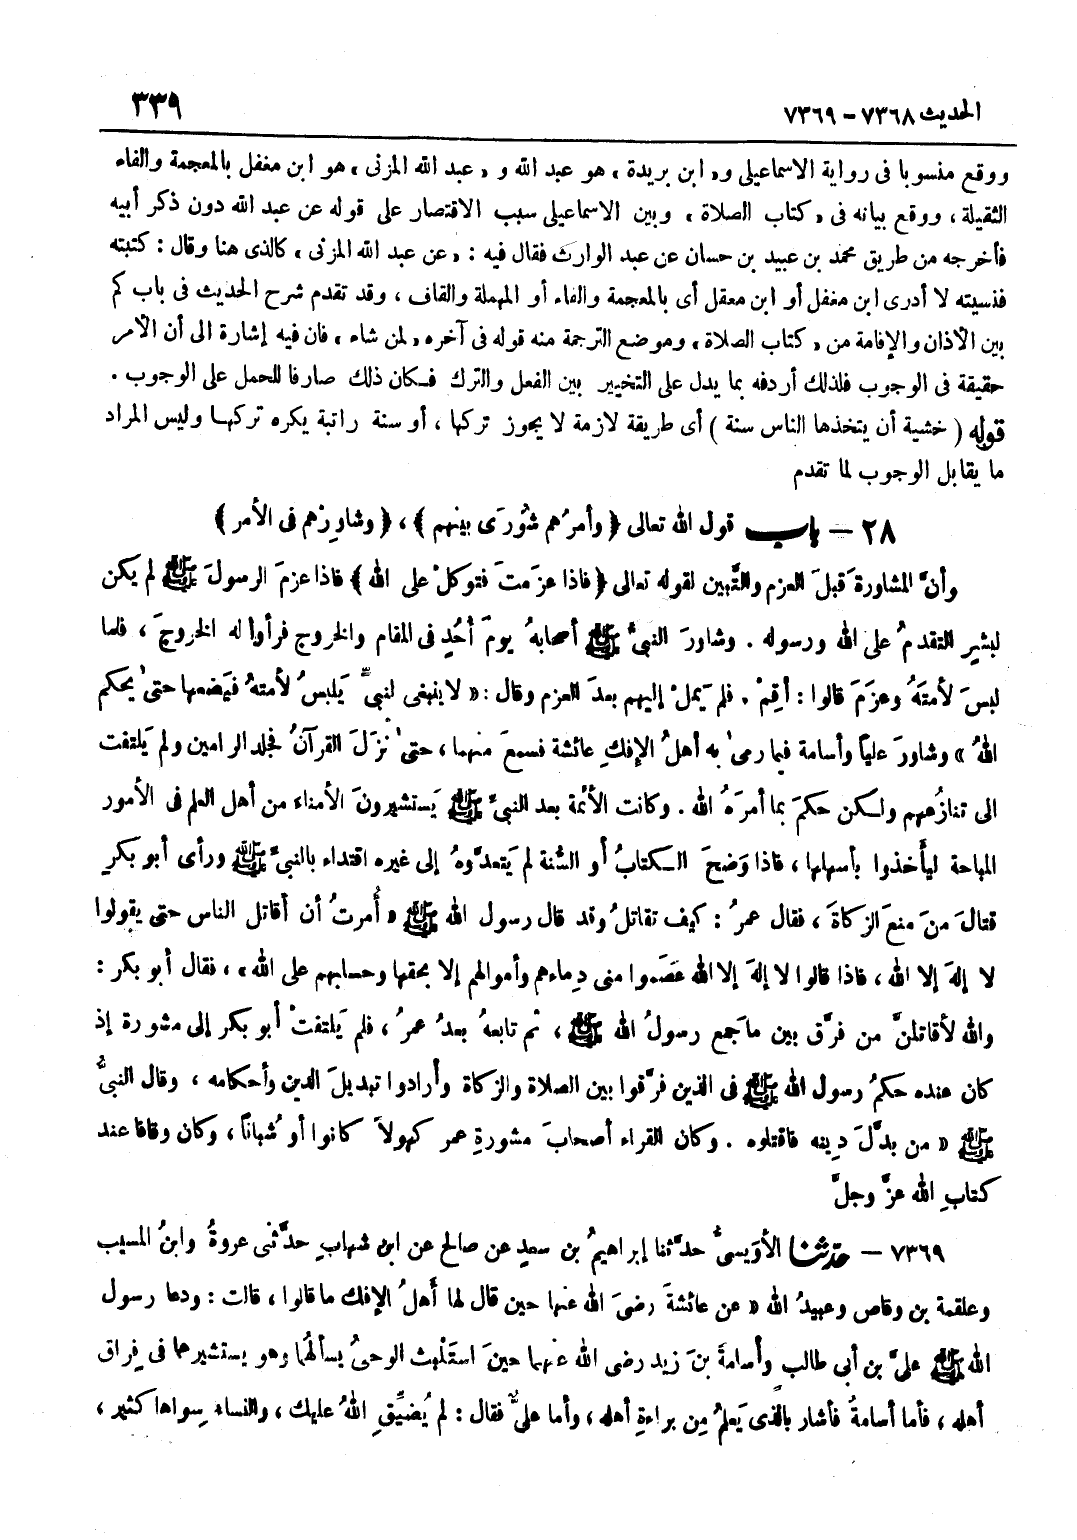 الحديث ٧٣٦٨ - ٧٣٦٩
٣٣٩
ووقع منسوبا فى رواية الاسماعيلى و« ابن بريدة » هو عبد الله و « عبد الله المزنى » هو ابن مغفل بالمعجمة والفاء
الثقيلة ، ووقع بيانه فى « كتاب الصلاة » وبين الاسماعيلى سبب الاقتصار على قوله عن عبد الله دون ذكر أبيه
فأخرجه من طريق محمد بن عبيد بن حسان عن عبد الوارث فقال فيه : « عن عبد الله المزنى » كالذى هنا وقال : كتبته
فنسيته لا أدرى ابن مغفل أو ابن معقل أى بالمعجمة والفاء أو المهملة والقاف ، وقد تقدم شرح الحديث فى باب كم
بين الأذان والإقامة من « كتاب الصلاة » وموضع الترجمة منه قوله فى آخره « لمن شاء » فان فيه إشارة الى أن الأمر
حقيقة فى الوجوب فلذلك أردفه بما يدل على التخيير بين الفعل والترك فكان ذلك صارفا للحمل على الوجوب .
قوله ( خشية أن يتخذها الناس سنة ) أى طريقة لازمة لا يجوز تركها ، أو سنة راتبة يكره تركها وليس المراد
ما يقابل الوجوب لما تقدم
٢٨ - باب قول الله تعالى ﴿ وأمرُهم شُورَى بينهم ﴾ ، ﴿ وشاوِرْهم فى الأمر ﴾
وأنَّ المشاورةَ قبلَ العزم والتَّبين لقوله تعالى ﴿ فاذا عزمتَ فتوكلْ على الله ﴾ فاذا عزمَ الرسولَ ﷺ لم يكن
لبشرٍ التقدمُ على الله ورسوله . وشاورَ النبىُّ ﷺ أصحابهُ يومَ أُحُدٍ فى المقام والخروج فرأوا له الخروجَ ، فلما
لبسَ لأمتَهُ وعزَمَ قالوا : أقِمْ . فلم يَمِلْ إليهم بعدَ العزم وقال : « لا ينبغى لنبىٍّ يَلبسُ لأمتهُ فيَضعها حتىٰ يحكم
اللهُ » وشاورَ علياً وأسامة فيما رمىٰ به أهلُ الإفكِ عائشة فسمعَ منهما ، حتىٰ نزلَ القرآنُ فجلد الرامين ولم يَلتفت
الى تنازُعهم ولكن حكمَ بما أمرَهُ الله . وكانت الأئمة بعد النبىِّ ﷺ يَستشيرونَ الأمناء من أهل العلم فى الأمور
المباحة ليأخذوا بأسهلها ، فاذا وَضحَ الكتابُ أو السُّنة لم يَتعدَّوهُ إلى غيره اقتداء بالنبىِّ ﷺ ورأى أبو بكرٍ
قتالَ مَنْ منعَ الزكاةَ ، فقال عمرُ : كيف تقاتلُ وقد قال رسول الله ﷺ « أُمرتُ أن أقاتل الناس حتى يقولوا
لا إلهَ إلا الله ، فاذا قالوا لا إلهَ إلا الله عَصَموا منى دِماءهم وأموالهم إلا بحقها وحسابهم على الله » ، فقال أبو بكر :
والله لأقاتلنَّ من فرَّق بين ما جمع رسولُ الله ﷺ ، ثم تابعهُ بعدُ عمرُ ، فلم يَلتفتْ أبو بكر إلى مشورة إذ
كان عنده حكمُ رسول الله ﷺ فى الذين فرَّقوا بين الصلاة والزكاة وأرادوا تبديلَ الدين وأحكامه ، وقال النبىُّ
ﷺ « من بدَّلَ دِينه فاقتلوه . وكان القراء أصحابَ مشورةِ عمر كهولاً كانوا أو شُباناً ، وكان وقافا عند
كتابِ الله عزَّ وجلَّ
٧٣٦٩ - حدّثنا الأويسىُّ حدَّثنا إبراهيمُ بن سعدٍ عن صالح عن ابن شهابٍ حدَّثنى عروةُ وابنُ المسيب
وعلقمة بن وقاص وعبيدُ الله « عن عائشةَ رضىَ الله عنها حين قال لها أهلُ الإفك ما قالوا ، قالت : ودعا رسول
الله ﷺ علىَّ بن أبى طالب وأسامةَ بنَ زيد رضى الله عنهما حينَ استلبث الوحىُ يسألهُما وهو يستشيرهما فى فِراق
أهله ، فأما أسامةُ فأشار بالذى يَعلمُ مِن براءةِ أهله ، وأما علىٌّ فقال : لم يُضيِّقِ اللهُ عليك ، والنساء سِواها كثير ،